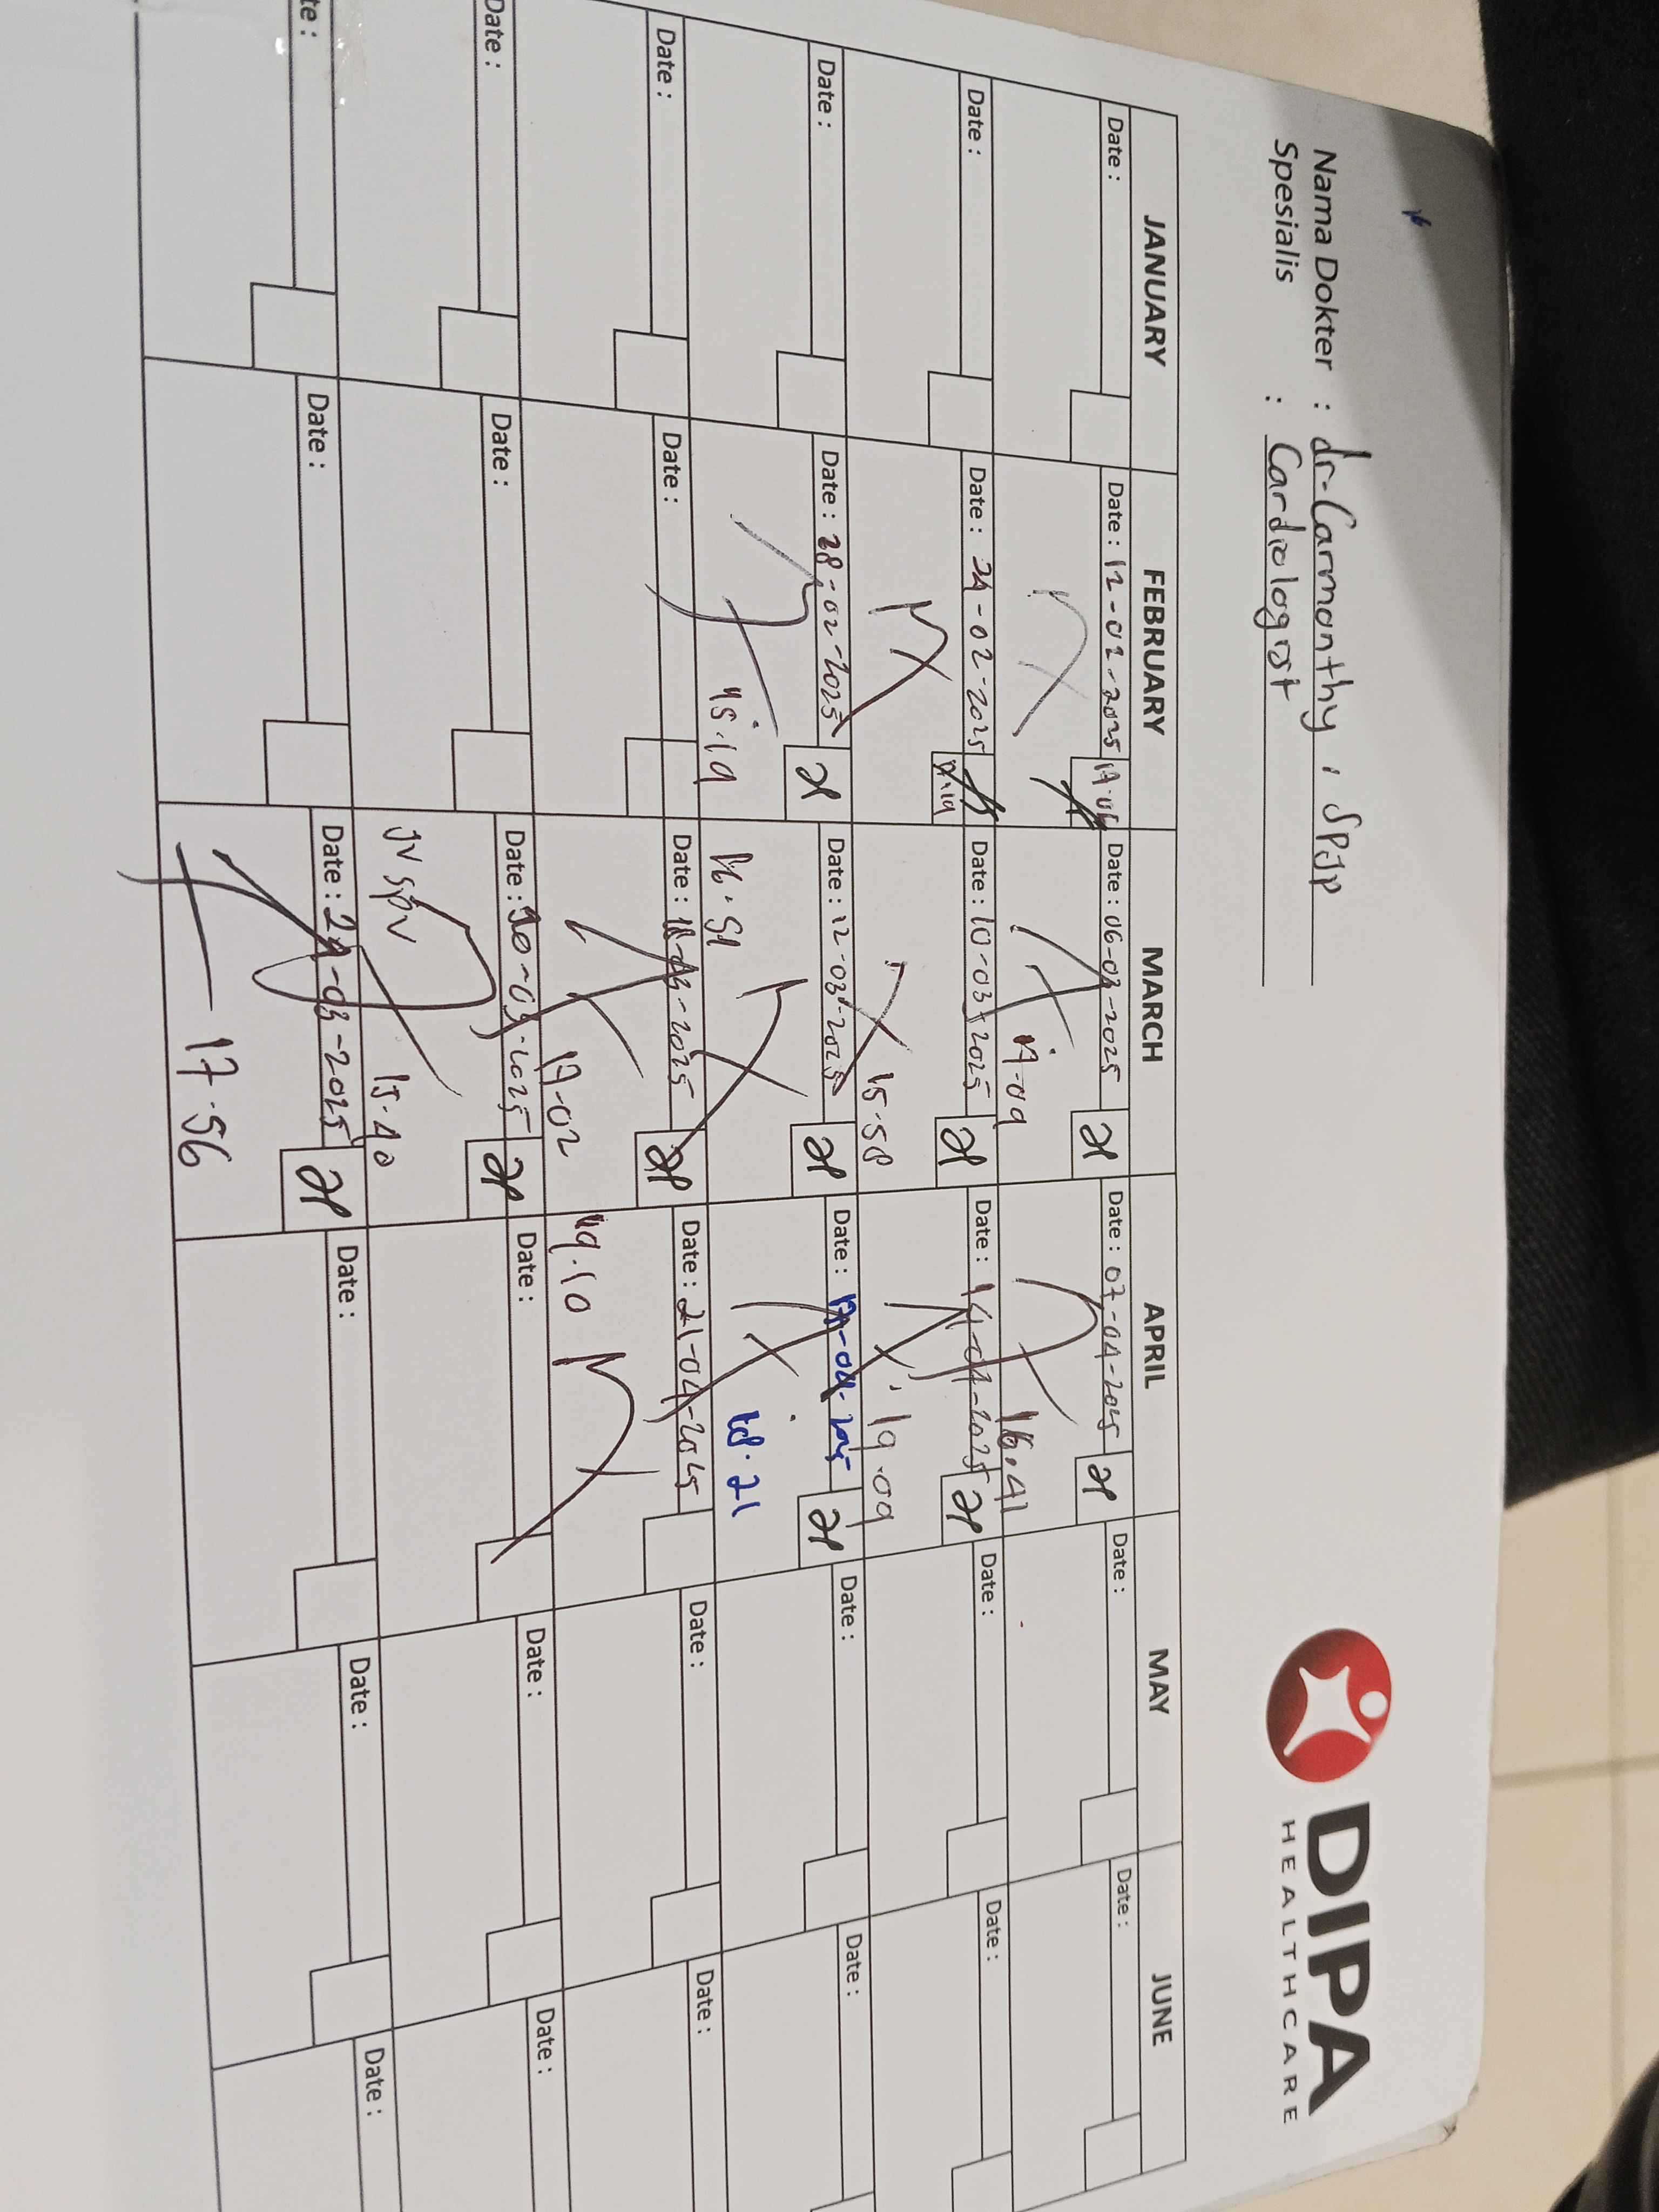 Nama Dokter : dr. Carmonthy, SPJP
Spesialis : Cardiologist
DIPA
HEALTHCARE
JANUARY FEBRUARY MARCH APRIL MAY JUNE
Date : Date : 12-02-2025 Date : 06-03-2025 Date : 07-04-2025 Date : Date :
16.41
Date : Date : 24-02-2025 Date : 10-03-2025 Date : 14-04-2025 Date : Date :
15.58 19.09
Date : Date : 28-02-2025 Date : 12-03-2025 Date : Date : Date :
16.51 18.21
Date : Date : Date : 18-03-2025 Date : 21-04-2025 Date : Date :
17-02 19.10
Date : Date : Date : 20-03-2025 Date : Date : Date :
JV SPV 15.40
te : Date : Date : 24-03-2025 Date : Date : Date :
17.56